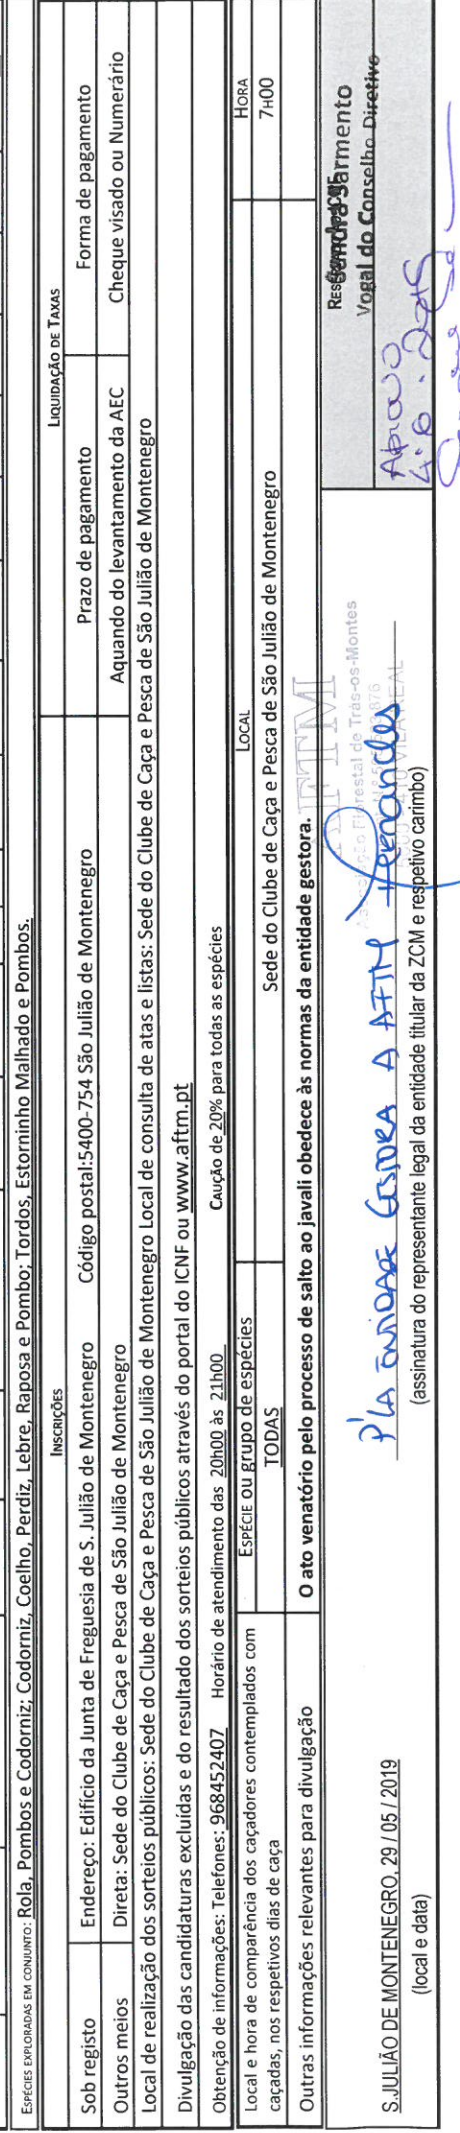 ESPÉCIES EXPLORADAS EM CONJUNTO: Rola, Pombos e Codorniz; Codorniz, Coelho, Perdiz, Lebre, Raposa e Pombo; Tordos, Estorninho Malhado e Pombos.
INSCRIÇÕES
LIQUIDAÇÃO DE TAXAS
Sob registo Endereço: Edifício da Junta de Freguesia de S. Julião de Montenegro Código postal:5400-754 São Julião de Montenegro Prazo de pagamento Forma de pagamento
Outros meios Direta: Sede do Clube de Caça e Pesca de São Julião de Montenegro Aquando do levantamento da AEC Cheque visado ou Numerário
Local de realização dos sorteios públicos: Sede do Clube de Caça e Pesca de São Julião de Montenegro Local de consulta de atas e listas: Sede do Clube de Caça e Pesca de São Julião de Montenegro
Divulgação das candidaturas excluídas e do resultado dos sorteios públicos através do portal do ICNF ou www.aftm.pt
Obtenção de informações: Telefones: 968452407 Horário de atendimento das 20h00 às 21h00 CAUÇÃO de 20% para todas as espécies
Local e hora de comparência dos caçadores contemplados com caçadas, nos respetivos dias de caça
ESPÉCIE OU grupo de espécies LOCAL HORA
TODAS Sede do Clube de Caça e Pesca de São Julião de Montenegro 7H00
Outras informações relevantes para divulgação O ato venatório pelo processo de salto ao javali obedece às normas da entidade gestora.
AFTM
Associação Florestal de Trás-os-Montes
VILA REAL
P'LA ENTIDADE GESTORA A AFTM Fernandes
S.JULIÃO DE MONTENEGRO, 29 / 05 / 2019
(local e data)
(assinatura do representante legal da entidade titular da ZCM e respetivo carimbo)
Sandra Sarmento
Vogal do Conselho Diretivo
Aprovo